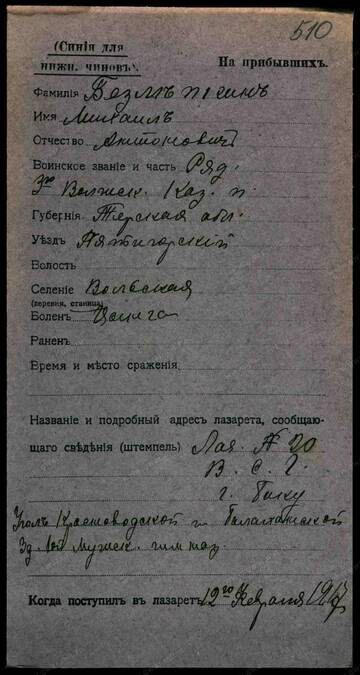 510
(Синія для
нижн. чиновъ).
На прибывшихъ.
Фамилія
Имя Михаилъ
Отчество Антоновичъ
Воинское званіе и часть Ряд.
3го Волжск. Каз. п.
Губернія Терская обл.
Уѣздъ Пятигорскій
Волость
Селеніе
(деревня, станица)
Боленъ Цынга
Раненъ
Время и мѣсто сраженія
Названіе и подробный адресъ лазарета, сообщаю-
щаго свѣдѣнія (штемпель) Лаз. № 20
В. С. Г.
г. Баку
Уголъ Красноводской и Балаханской
Зд. 1ой Мужск. гимназ.
Когда поступилъ въ лазаретъ 12го Февраля 1917